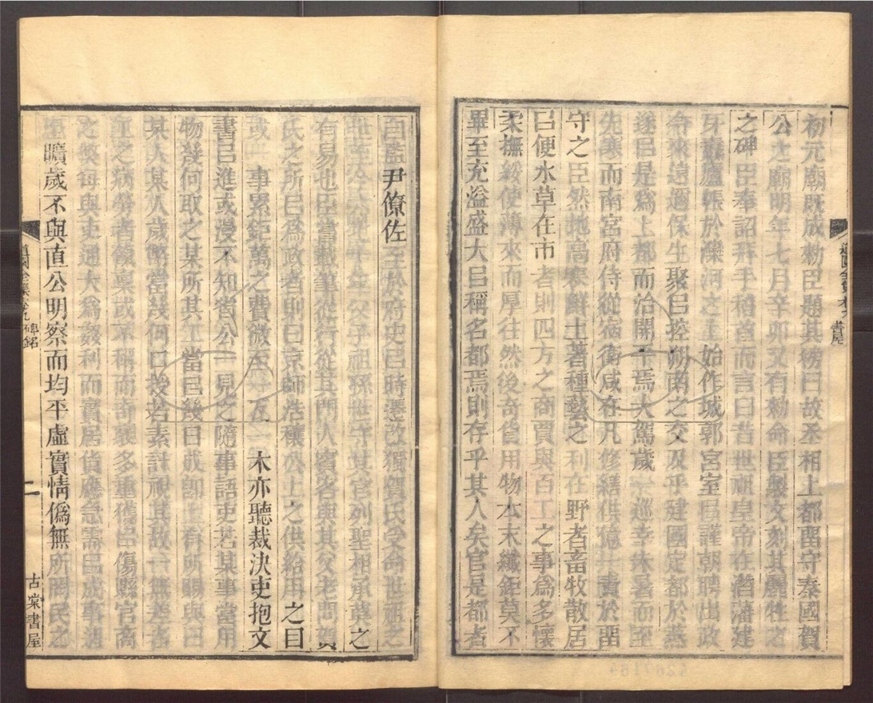 初元廟既成勑臣題其榜曰故丞相上都畱守秦國賀
公之廟明年七月辛卯又勑命臣製文刻其麗牲之
之碑臣奉詔拜手稽首而言曰昔世祖皇帝在潛藩建
牙纛廬帳於灤河之上始作城郭宮室㠯謹朝聘出政
令來遠邇保生聚㠯控朔南之交及乎建國定都於燕
遂㠯是爲上都而治開平焉大駕歲一巡幸未暑而至
先寒而南宮府侍從宿衛咸在凡修繕供億一責於畱
守之臣然地高寒鮮土著種藝之利在野者畜牧散居
㠯便水草在市者則四方之商賈與百工之事爲多懷
柔撫綏使薄來而厚往然後奇貨用物本末纖鉅莫不
畢至充溢盛大㠯稱名都焉則存乎其人矣官是都者
自監尹僚佐至於府史㠯時遷改獨賀氏受命世祖之
世至今六七十年父子祖孫世守其官列聖相承莫之
有易也臣嘗載筆從行從其門人賓客與其父老問賀
氏之所㠯爲政者則曰京師浩穰公上之供給用之目
或一事累鉅萬之費微至一瓦一木亦聽裁決吏抱文
書㠯進或漫不知省公一見之隨事語吏若某事當用
物幾何取之某所其工當㠯幾日成卽上有所賜與曰
某人某人歲幣當幾何口授若素計視其故一無差者
之病弊者或不稱而奇衺多重獲㠯傷縣官商
之弊每與吏通大爲姦利而實居貨應急需㠯成事
曠歲不與直公明察而均平虛實情僞無所罔民之
碑銘
二
古棠書屋